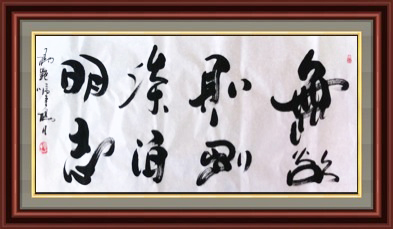 無欲
則剛
淡泊
明志